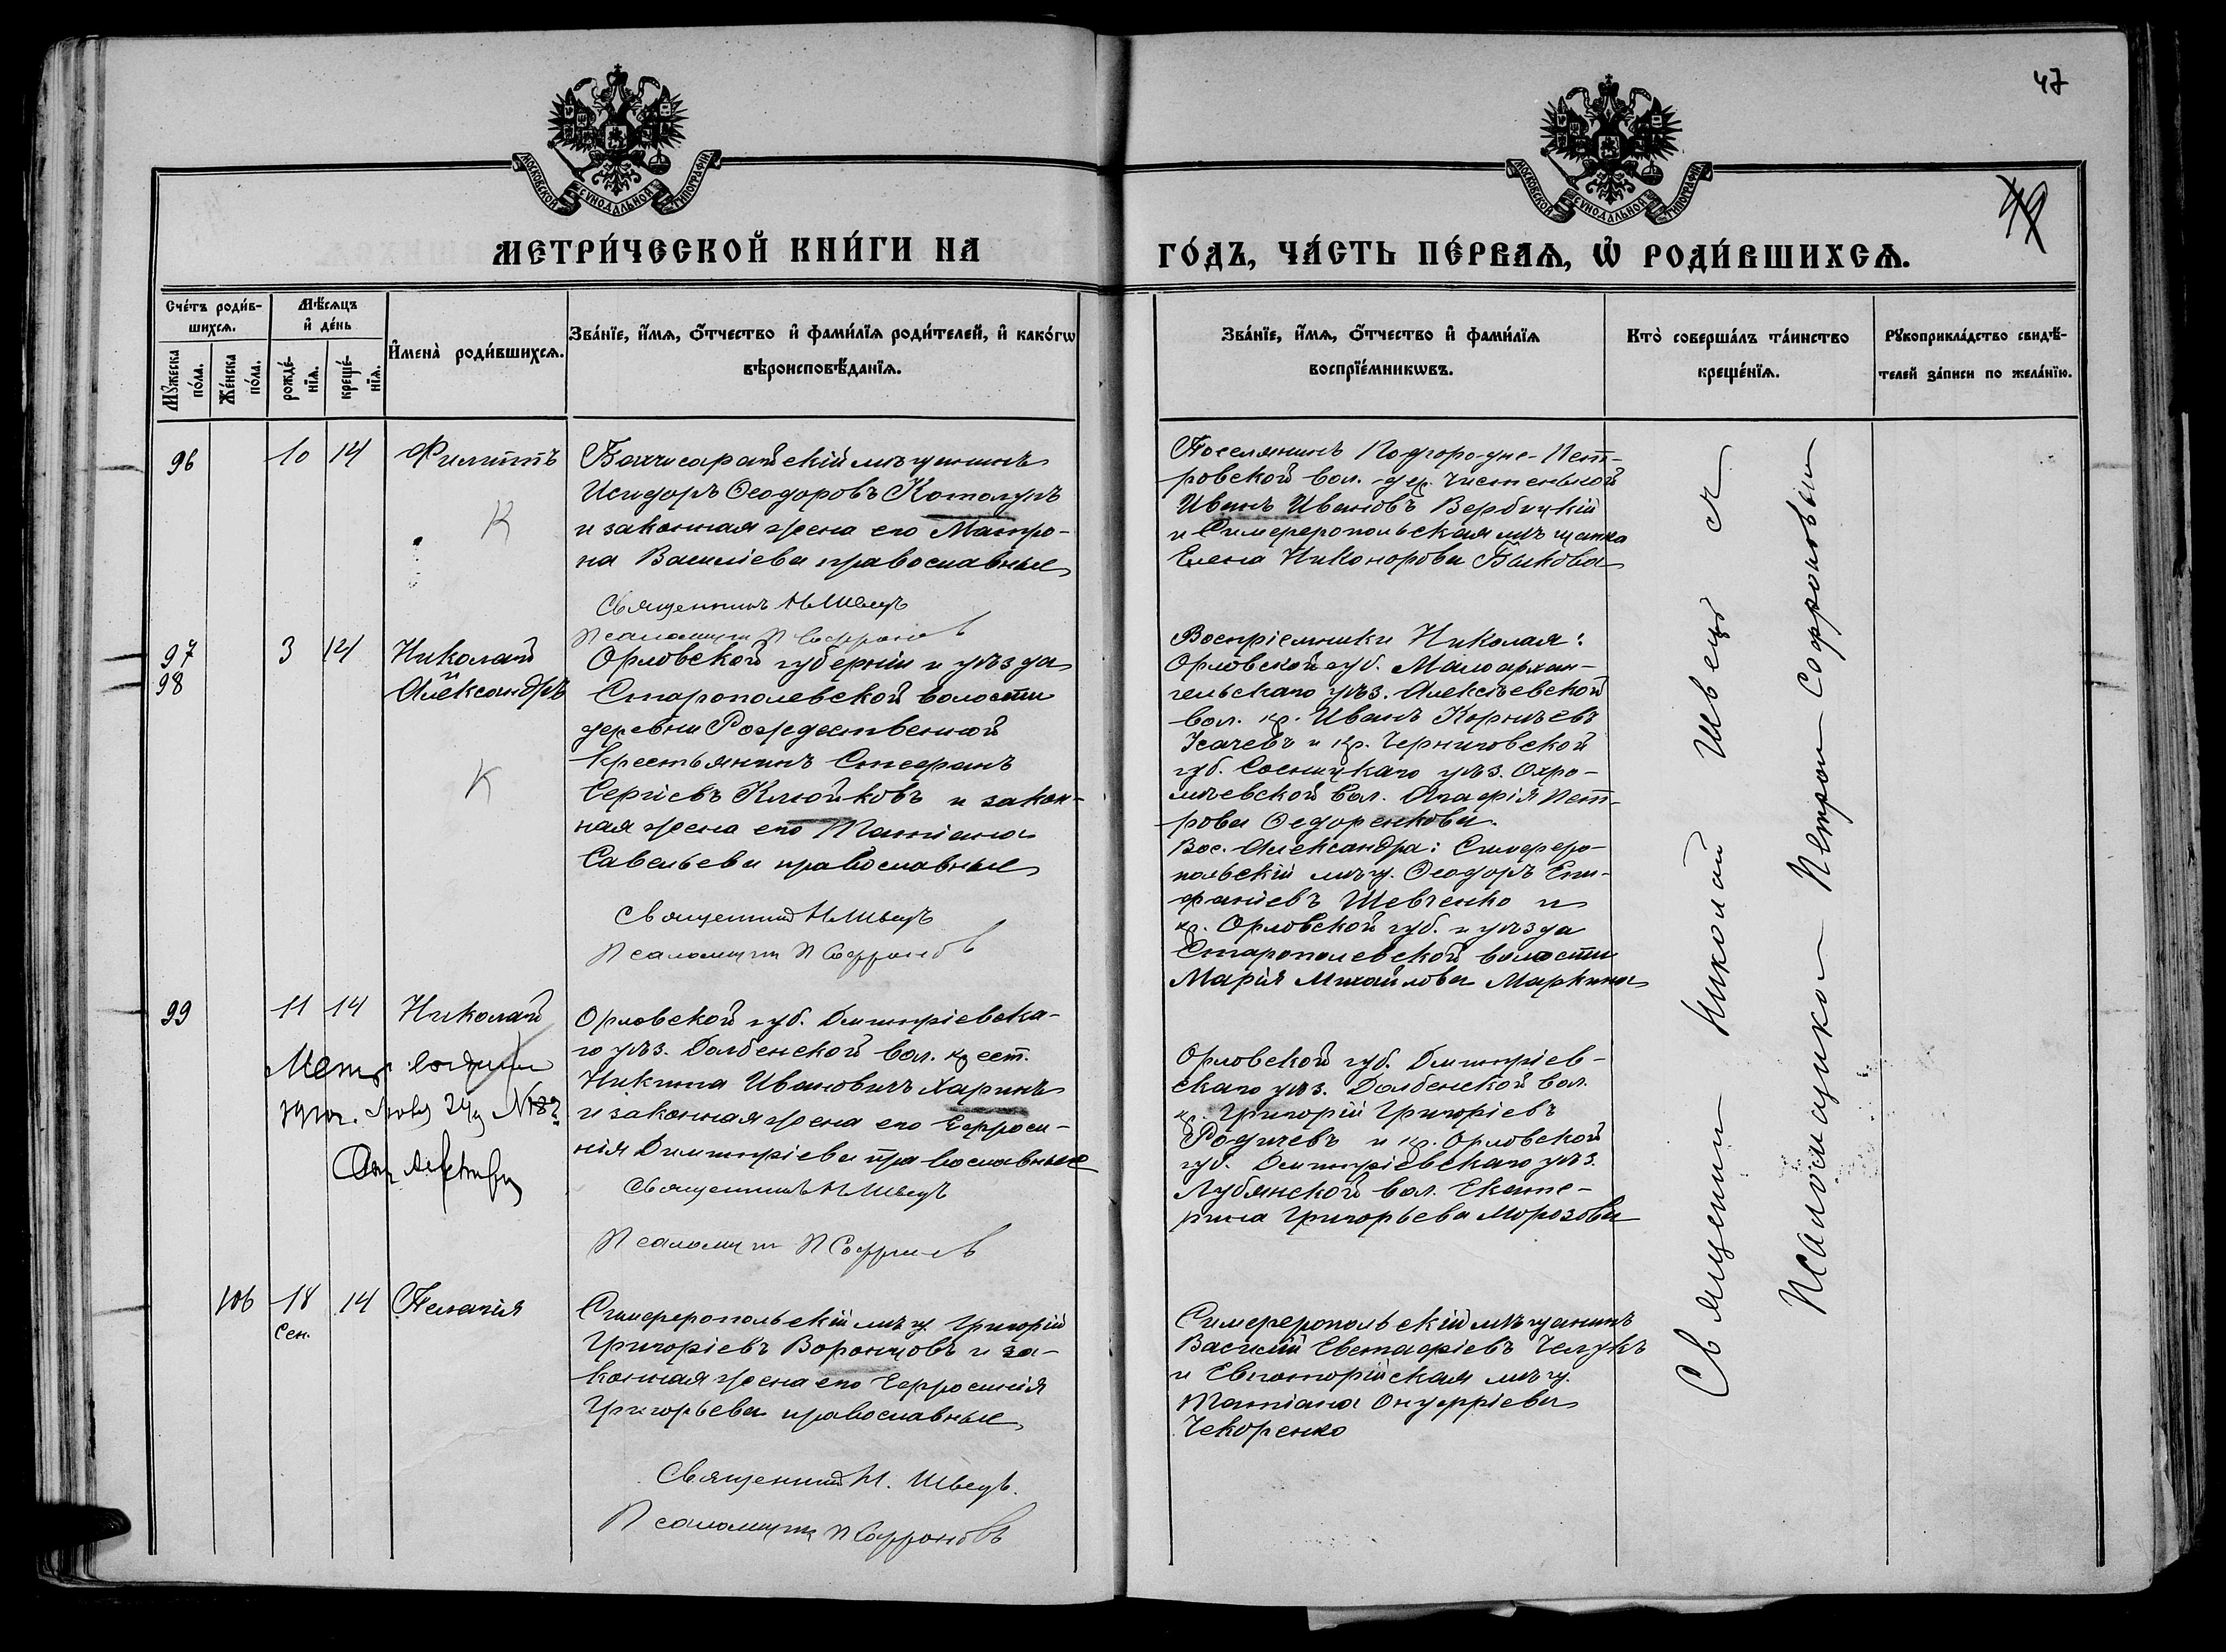 47
49
МОСКОВСКОЙ СѴНОДАЛЬНОЙ ТИПОГРАФІИ
МОСКОВСКОЙ СѴНОДАЛЬНОЙ ТИПОГРАФІИ
МЕТРИ́ЧЕСКОЙ КНИ́ГИ НА ГО́ДЪ, ЧА́СТЬ ПЕ́РВАѦ, Ѡ҆ РОДИ́ВШИХСѦ.
Сче́тъ роди́в-
шихсѧ.
Мѹ́жеска по́ла.
Же́нска по́ла.
Мѣ́сѧцъ
и҆ де́нь
рожде́-
нїѧ.
креще́-
нїѧ.
И҆мена̀ роди́вшихсѧ.
Зва́нїе, и҆́мѧ, ѻ҆́тчество и҆ фами́лїѧ роди́телей, и҆ како́гѡ
вѣроисповѣ́данїѧ.
Зва́нїе, и҆́мѧ, ѻ҆́тчество и҆ фами́лїѧ
воспрїе́мникѡвъ.
Кто̀ соверша́лъ та́инство
креще́нїѧ.
Рѹкоприкла́дство свидѣ́-
телей за́писи по жела́нїю.
96 10 14 Филиппъ
К
Бахчисарайскій мѣщанинъ
Исидоръ Ѳеодоровъ Котолупъ
и законная жена его Матро-
на Василіева православные
Священникъ Н Швецъ
Псаломщик П Софронов
Поселянинъ Подгородне-Пет-
ровской вол. дер. Чистенькой
Иванъ Ивановъ Вербицкій
и Симферопольская мѣщанка
Елена Никонорова Быкова
97
98
3 14 Николай
и
Александръ
К
Орловской губерніи и уѣзда
Старополевской волости
деревни Рождественной
крестьянинъ Стефанъ
Сергіевъ Клюйковъ и закон-
ная жена его Татіана
Савельева православные
Священник Н Швецъ
Псаломщик П Софронов
Воспріемники Николая:
Орловской губ. Малоархан-
гельскаго уѣз. Алексѣевской
вол. кр. Иванъ Корнѣевъ
Усачевъ и кр. Черниговской
губ. Сосницкаго уѣз. Охро-
мѣевской вол. Агафія Пет-
рова Ѳедоренкова.
Вос. Александра: Симферо-
польскій мѣщ. Ѳеодоръ Епи-
фаніевъ Шевченко и
кр. Орловской губ. и уѣзда
Старополевской волости
Марія Михайлова Маркина
99 11 14 Николай
Орловской губ. Димитріевска-
го уѣз. Долбенской вол. крест.
Никита Ивановичъ Харинъ
и законная жена его Ефроси-
нія Димитріева православные
Священникъ Н Швецъ
Псаломщик П Софронов
Орловской губ. Димитріев-
скаго уѣз. Долбенской вол.
кр. Григорій Григоріевъ
Родичевъ и кр. Орловской
губ. Димитріевскаго уѣз.
Лубянской вол. Екате-
рина Григорьева Морозова
106 18 14 Пелагія
Сен.
Симферопольскій мѣщ. Григорій
Григоріевъ Воронцовъ и за-
конная жена его Ефросинія
Григорьева православные
Священник Н. Швецъ.
Псаломщик П Софроновъ
Симферопольскій мѣщанинъ
Василій Евстафіевъ
и Евпаторійская мѣщ.
Татіана Онуфріева
Чекоренко
Священник Николай Швецъ съ
Псаломщиком Петром Софроновым